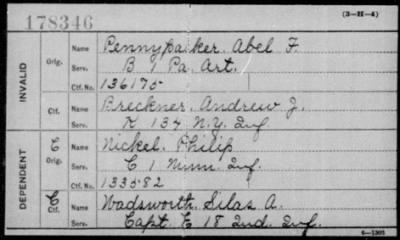 178346
(3-H-4)
INVALID
Orig. Name Pennypacker, Abel F.
Serv. B 1 Pa. Art.
Ctf. No. 136175
Ctf. Name Breckner, Andrew J.
Serv. K 134 N.Y. Inf.
DEPENDENT
C Orig. Name Nickel, Philip
Serv. C 1 Minn. Inf.
Ctf. No. 133582
C Ctf. Name Wadsworth, Silas A.
Serv. Capt. E 18 Ind. Inf.